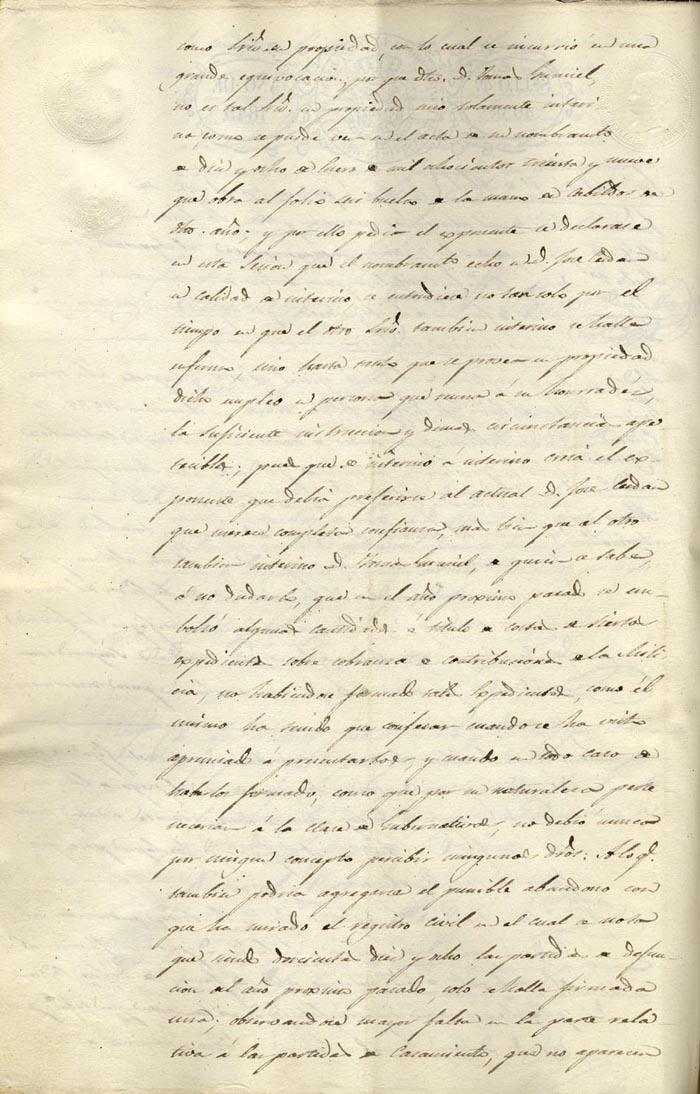 como Srio. en propiedad, en lo cual se incurrió en una
grande equivocacion, por que dho. D. Tomas
no es tal Srio. en propiedad sino solamente interi
no, como se puede ver en el acta de su nombramto.
de diez y ocho de Enero de mil ochocientos treinta y nueve
que obra al folio seis buelto de la mano de Cabildos de
dho. año; y por ello pedia el exponente se declarase
en esta Sesion que el nombramto. echo en D. Jose
en calidad de interino se entendiese no tan solo por el
tiempo en que el otro Srio. tambien interino se halla
enfermo, sino hasta tanto que se provea en propiedad
dicho empleo en persona que reuna á su honradéz,
la suficiente instruccion y demas circunstancias ape
tecibles; pues que de interino á interino creia el ex-
ponente que debia preferirse al actual D. Jose
que merece completa confianza, mas bien que al otro
tambien interino D. Tomas de quien se sabe,
á no dudarlo, que en el año proximo pasado se em-
bolsó algunas cantidades á titulo de costas de ciertos
expedientes sobre cobranza de contribuciones de la Mili
cia, no habiendose formado tales Expedientes, como él
mismo ha tenido que confesar cuando se ha visto
apremiado á presentarlos, y cuando en todo caso de
haberlos formado, como que por su naturaleza perte
necerian á la clase de Gubernativos, no debió nunca
por ningun concepto percibir ningunos dros: A lo q.
tambien podria agregarse el punible abandono con
que ha mirado el registro civil en el cual se nota
que siendo doscientas diez y ocho las partidas de defun-
cion del año proximo pasado, solo se halla firmada
una: observandose mayor falta en la parte rela
tiva á las partidas de Casamiento, que no aparecen